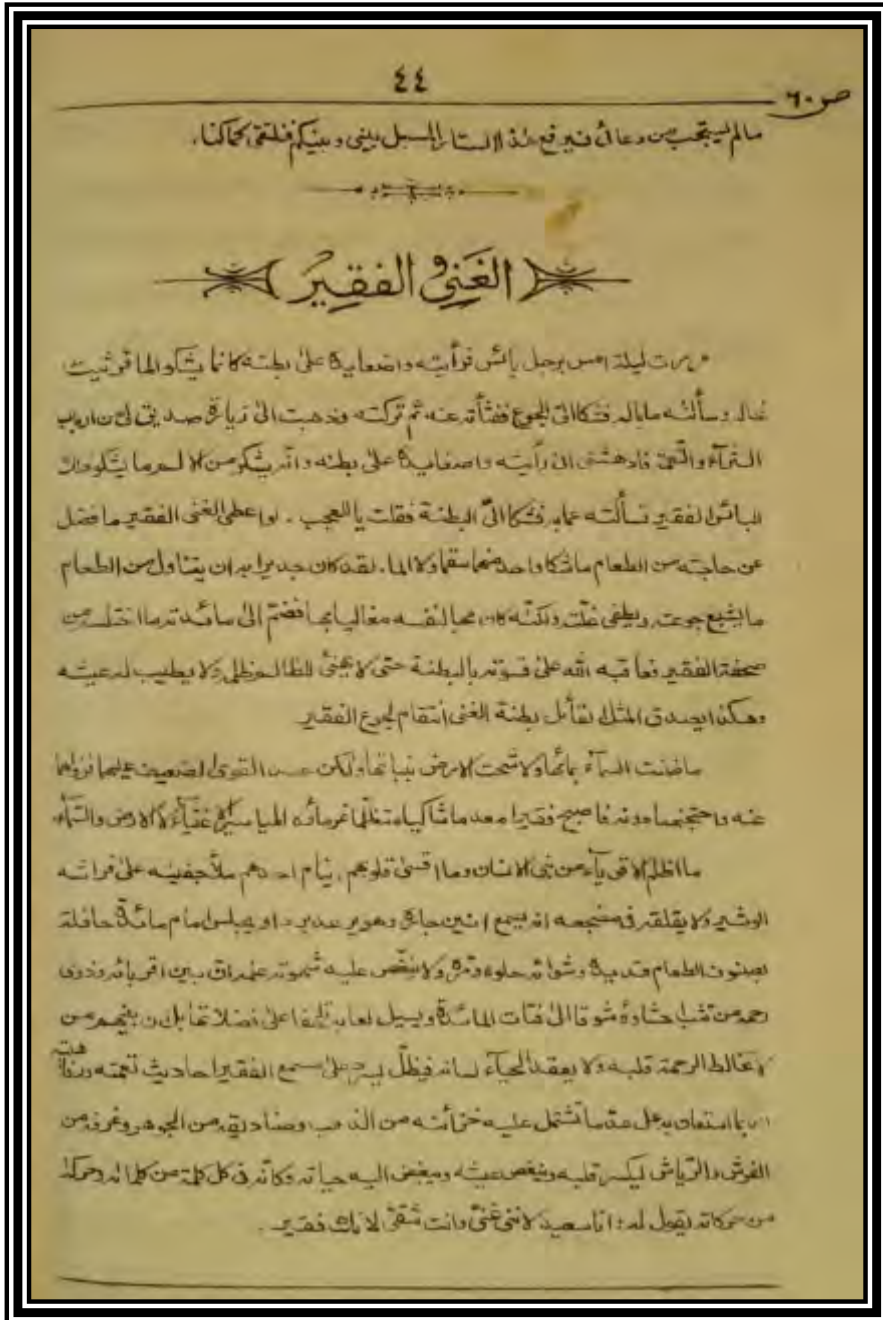 ٤٤
ص ٦٠
مالم يستجب من دعائى فيرفع هذا الستار المسبل بينى وبينكم فنلتقى كما كنا.
الغَنِي و الفقِير
مررت ليلة امس برجل بائس فرأيته واضعا يده على بطنه كانما يشكو الما فرثيت
لحاله وسألته ما باله فشكا الىّ الجوع ففثأته عنه ثم تركته وذهبت الى زيارة صديق لى من ارباب
الثرآء والنعمة فادهشنى انى رأيته واضعا يده على بطنه وانه يشكو من الالم ما يشكو ذلك
البائس الفقير فسألته عما به فشكا الىّ البطنة فقلت ياللعجب . لو اعطى الغنى الفقير ما فضل
عن حاجته من الطعام ما شكا واحد منهما سقما ولا الما. لقد كان جديرا به ان يتناول من الطعام
ما يشبع جوعته ويطفى غلته ولكنّه كان محبا لنفسه مغاليا بها فضمّ الى مائدته ما اختلسه من
صحفة الفقير فعاقبه الله على قسوته بالبطنة حتى لا يهنئ للظالم ظلمه ولا يطيب له عيشه
وهكذا يصدق المثل القائل بطنة الغنى انتقام لجوع الفقير
ما ضنت السمآء بمائها ولا شحت الارض بنباتها ولكن حسد القوى الضعيف عليهما فزواهما
عنه واحتجنهما دونه فاصبح فقيرا معدما شاكيا متظلما غرماؤه المياسير الاغنيآء لا الارض والسمآء.
ما اظلم الاقويآء من بنى الانسان وما اقسى قلوبهم. ينام احدهم ملأ جفنيه على فراشه
الوثير ولا يقلقه فى مضجعه انه يسمع انين جاره وهو يرعد بردا ويجلس امام مائدة حافلة
بصنوف الطعام قديده وشوائه حلوه ومره ولا ينغّص عليه شهوته علمه ان بين اقربائه وذوى
رحمه من تثب احشاؤه شوقا الى فتات المائدة ويسيل لعابه تلهفا على فضلاتها بل ان بينهم من
لا تخالط الرحمة قلبه ولا يعقد الحيآء لسانه فيظلّ يسرد على مسمع الفقير احاديث نعمته ورفاهيته
وربما استعان به على عدّ ما تشتمل عليه خزائنه من الذهب وصناديقه من الجوهر وغرفه من
الفرش والرّياش ليكسر قلبه وينغص عيشه ويبغض اليه حياته وكانه فى كل كلمة من كلماته وحركة
من حركاته يقول له: انا سعيد لاننى غنىّ وانت شقىّ لانك فقير .